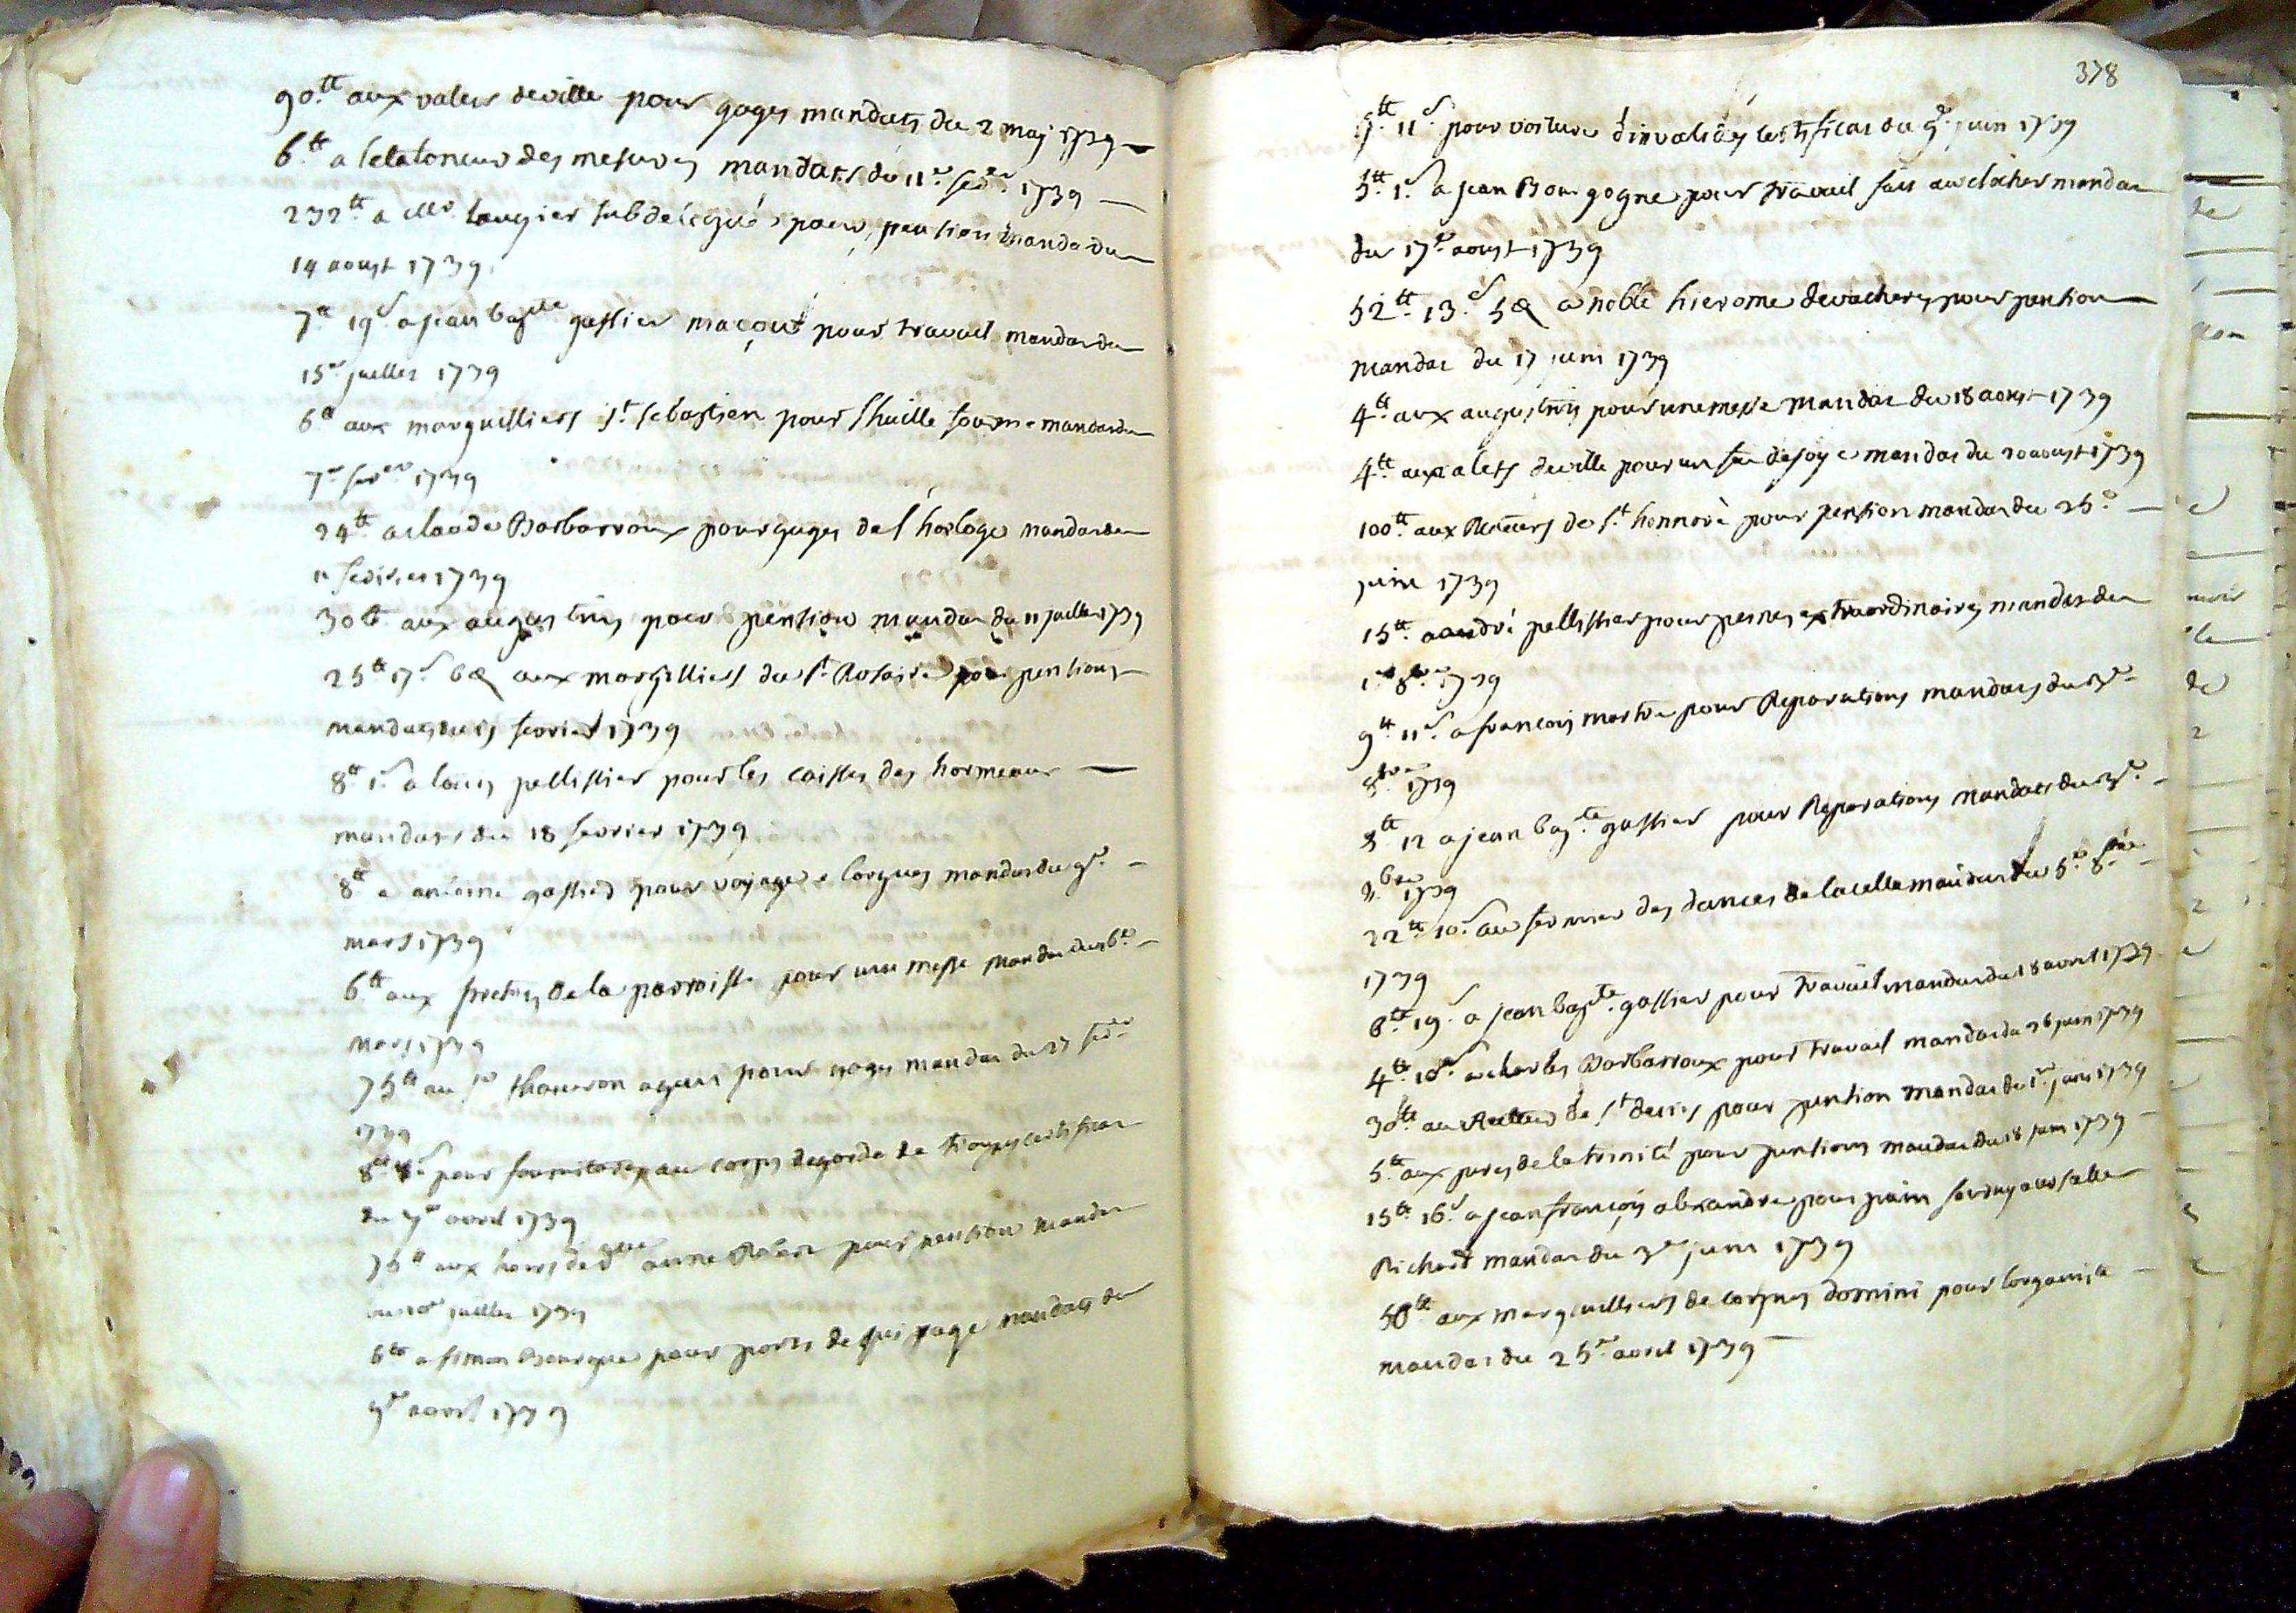 90.tt aux valets de ville pour gages mandats du 2 maj 1739
6.tt a letaloneur des mesures mandats du 11e fevr. 1739
232tt a Mr. laugier subdelegué pour pension mandat du
14 aoust 1739
7tt 19s a jean bapte gassier maçon pour travail mandat du
15e juillet 1739
6tt aux marguilliers st sebastien pour lhuille fournie mandat du
7e fevr 1739
24tt a claude Barbarroux pour gages de l'horloge mandat du
11 fevrier 1739
30tt aux augustins pour pention mandat du 11 juillet 1739
25tt 17s 6d aux margilliers du st Rosaire pour pentions
mandats du 15 fevrier 1739
8tt 1s a louis pellissier pour les caisses des hormeaux
mandats du 18 fevrier 1739
8tt a antoine gassier pour voyage a lorgues mandat du 9e
mars 1739
6tt aux pretres de la parroisse pour une messe mandat du
mars 1739
75tt au sr thouron agent pour gages mandat du 27 fevr
1739
8tt 8s pour fournitures au corps degarde de troupes certificat
du 7e avril 1739
aux hoirs de anne pour pention mandat
du juillet 1739
6tt a simon Bourgue pour ports de quipage mandats du
9e avril 1739
378
9tt 11s pour voiture dinvalides certificat du 9e juin 1739
5tt 1s a jean Bourgogne pour travail fait au clocher mandat
du 17e aoust 1739
52tt 13s 5d a noble hierome devacheres pour pention
mandat du 17 juin 1739
4tt aux augustins pour une messe mandat du 18 aoust 1739
4tt aux valets de ville pour un feu de joye mandat du 20 aoust 1739
100tt aux Recteurs de st honnoré pour pension mandat du 25e
juin 1739
15tt a andré pellissier pour peines extraordinaires mandat du
1er 8bre 1739
9tt 11s a francois martre pour Reparations mandats du 3e
8bre 1739
12 a jean bapte gassier pour Reparations mandats du 3e
8bre 1739
22tt 10s au fermier des dances de lacelle mandat du 5e 8bre
1739
6tt 19s a jean bapte gassier pour travail mandat du 18 avril 1739
4tt 10s a charles Barbarroux pour travail mandat du 26 juin 1739
30tt au Recteur de st denis pour pention mandat du 1er juin 1739
5tt aux peres de la trinité pour pentions mandat du 18 juin 1739
15tt 16s a jean françois alexandre pour pain fourny aux salle
Richard mandat du 3e juin 1739
50tt aux marguilliers de corpus domini pour lorganiste
mandat du 25e avril 1739